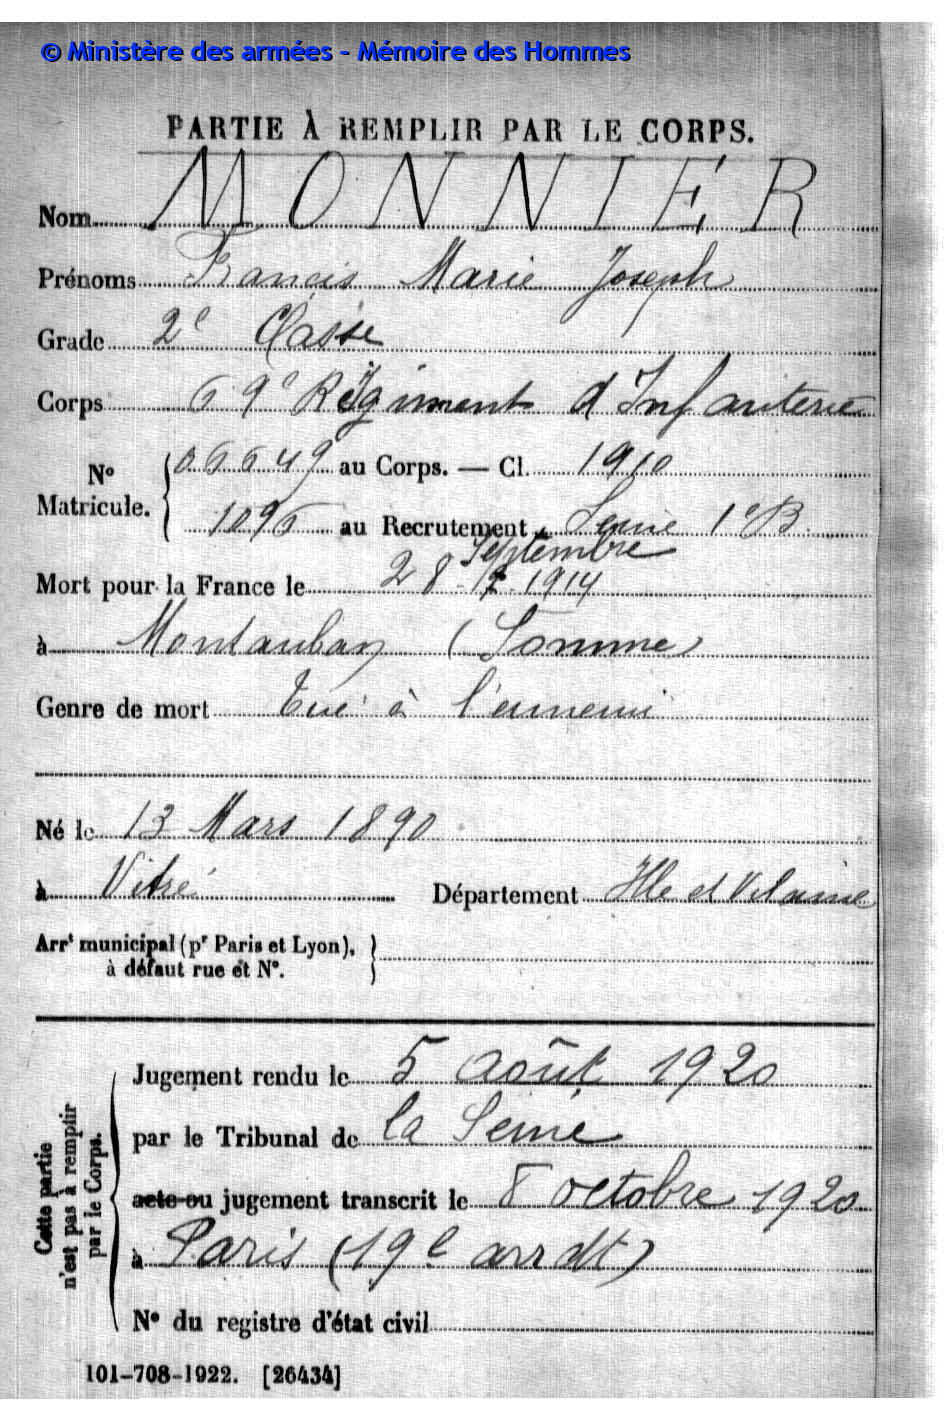 © Ministère des armées - Mémoire des Hommes
PARTIE À REMPLIR PAR LE CORPS.
Nom MONNIER
Prénoms Francis Marie Joseph
Grade 2e Classe
Corps 69e Régiment d'Infanterie
N° Matricule. 06649 au Corps. — Cl. 1910
1096 au Recrutement Seine 1e B
Septembre
Mort pour la France le 28 1914
à Montauban (Somme)
Genre de mort Tué à l'ennemi
Né le 13 Mars 1890
à Vitré Département Ille et Vilaine
Arrt municipal (pr Paris et Lyon),
à défaut rue et N°.
Cette partie
n'est pas à remplir
par le Corps.
Jugement rendu le 5 août 1920
par le Tribunal de la Seine
acte ou jugement transcrit le 8 octobre 1920
à Paris (19e arrdt)
N° du registre d'état civil
101-708-1922. [26434]